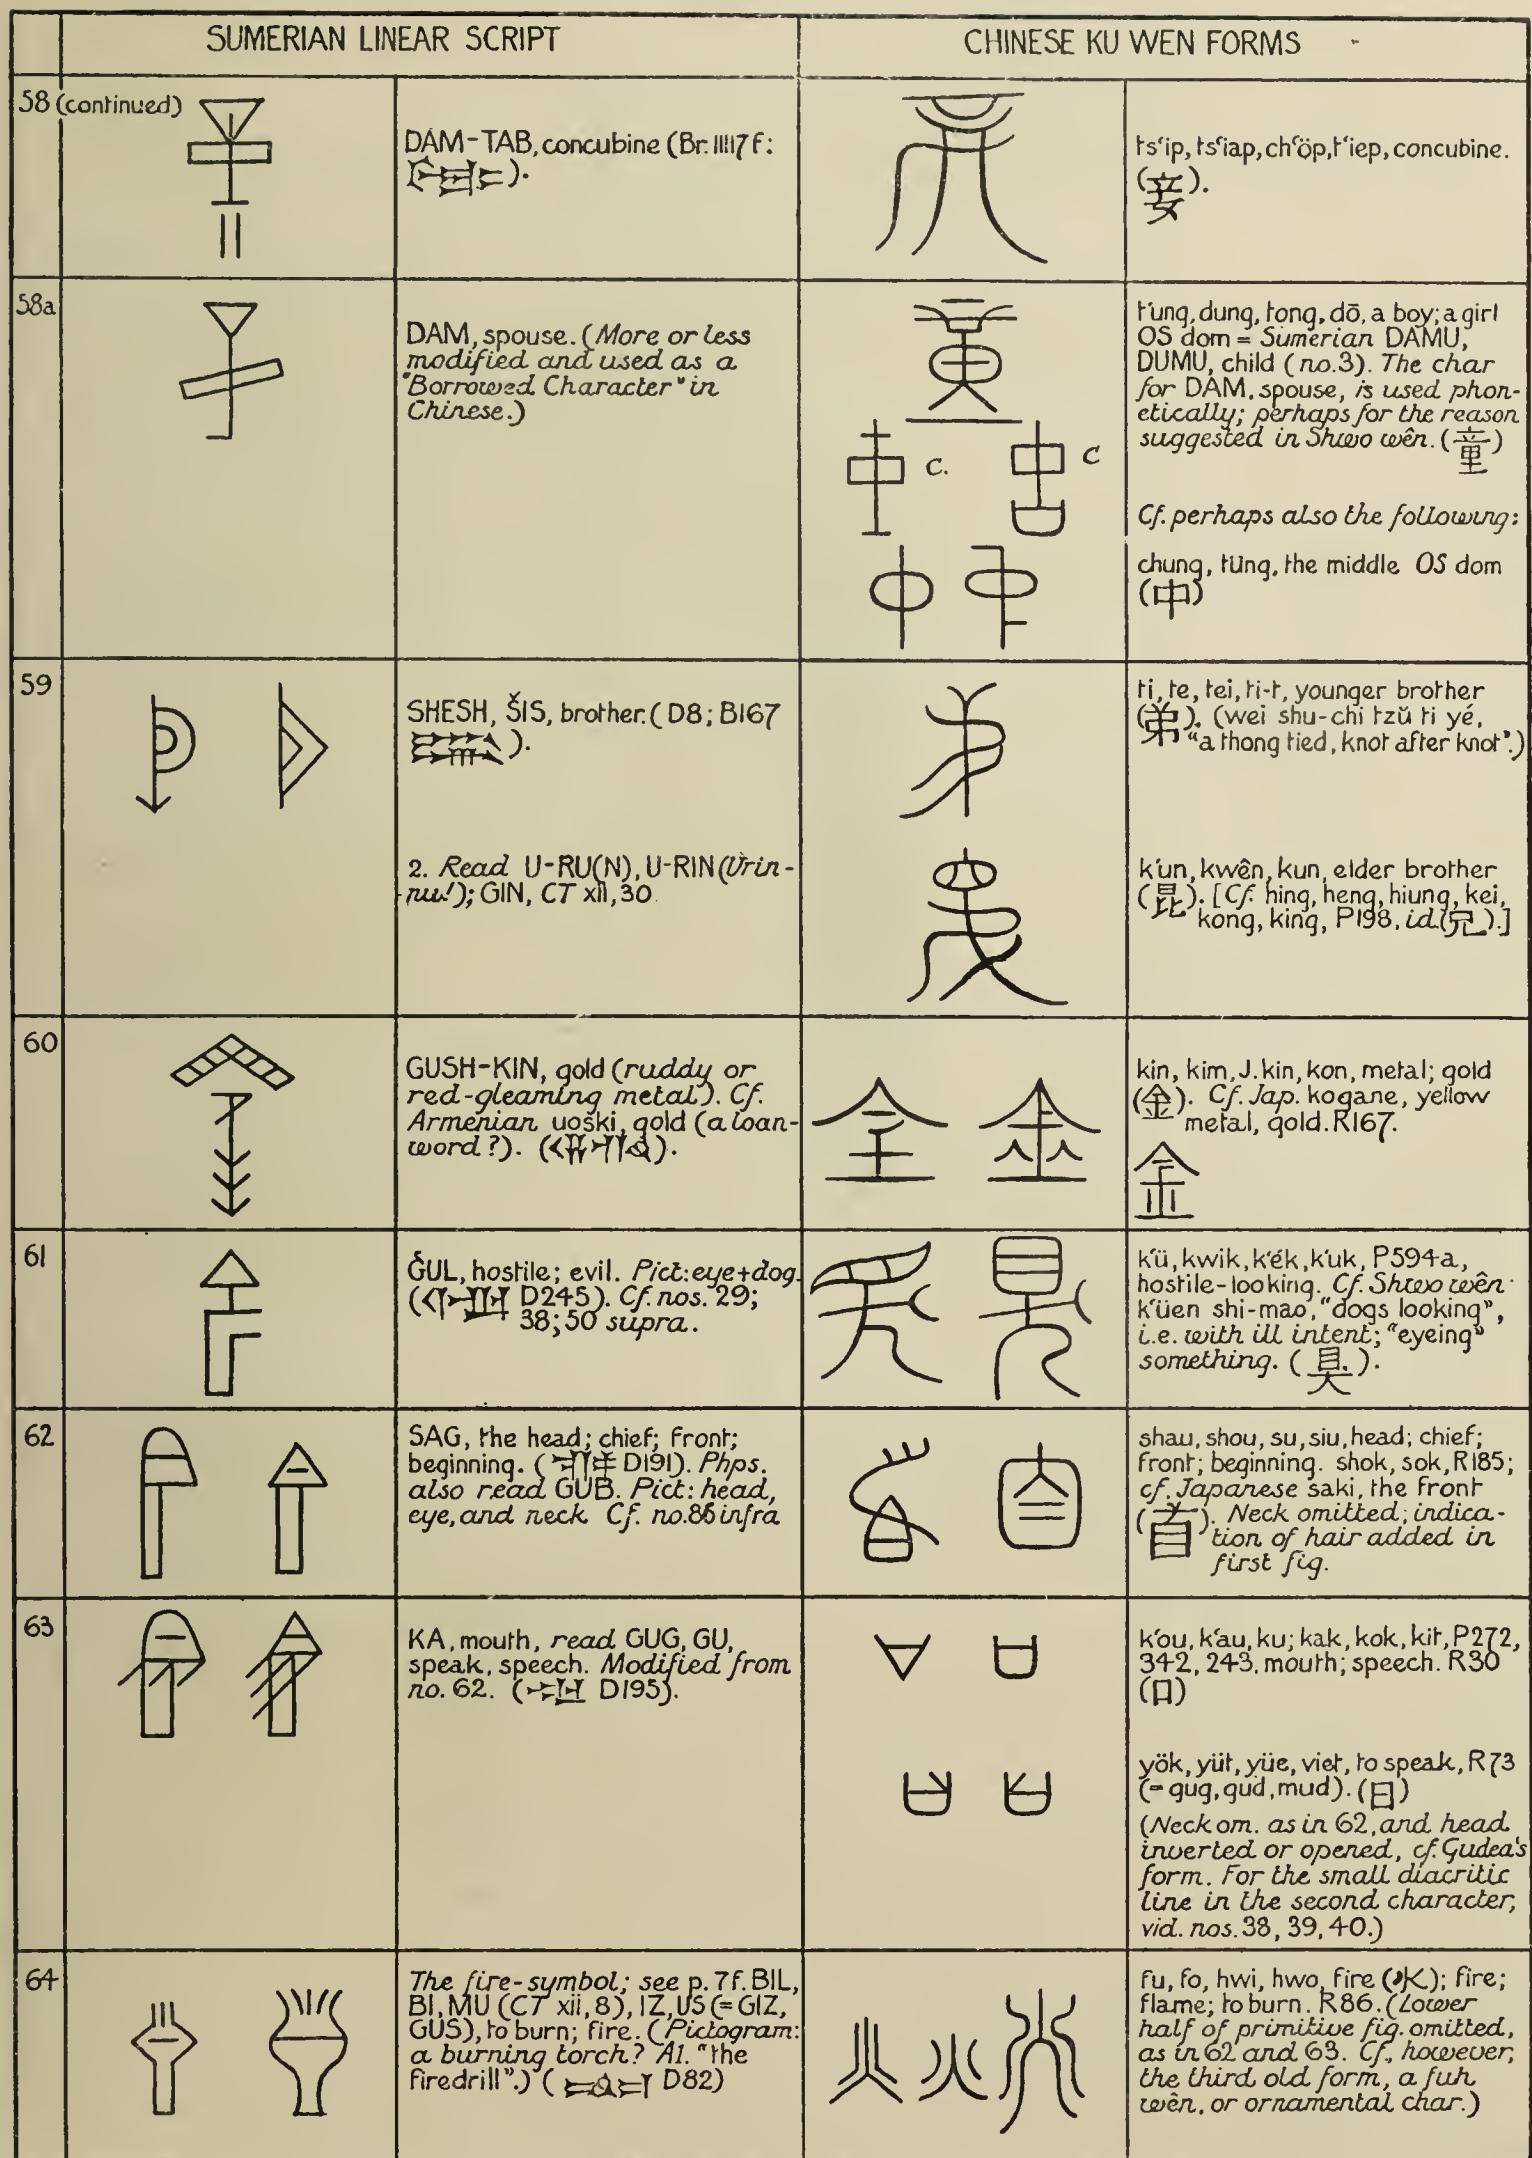 SUMERIAN LINEAR SCRIPT
CHINESE KU WEN FORMS
58 (continued)
DAM-TAB, concubine (Br. 11117 f:
).
tsʻip, tsʻiap, chʻöp, tʻiep, concubine.
(妾).
58a
DAM, spouse. (More or less
modified and used as a
"Borrowed Character" in
Chinese.)
C.
C
tʻung, dung, tong, dō, a boy; a girl
OS dom = Sumerian DAMU,
DUMU, child (no.3). The char
for DAM, spouse, is used phon-
etically; perhaps for the reason
suggested in Shwo wên. (童)
Cf. perhaps also the following:
chung, tüng, the middle OS dom
(中)
59
SHESH, ŠIS, brother. (D8; B167
).
2. Read U-RU(N), U-RIN (Urin-
nu!); GIN, CT xii, 30
ti, te, tei, ti-t, younger brother
(弟). (wei shu-chi tzŭ ti yé,
"a thong tied, knot after knot".)
kʻun, kwên, kun, elder brother
(昆). [Cf. hing, heng, hiung, kei,
kong, king, P198, id.(兄).]
60
GUSH-KIN, gold (ruddy or
red-gleaming metal). Cf.
Armenian uoški, gold (a loan-
word?). ( ).
kin, kim, J. kin, kon, metal; gold
(金). Cf. Jap. kogane, yellow
metal, gold. R167.
61
ĞUL, hostile; evil. Pict: eye+dog.
( D245). Cf. nos. 29;
38; 50 supra.
kʻü, kwik, kʻék, kʻuk, P594-a,
hostile-looking. Cf. Shwo wên
kʻüen shi-mao, "dogs looking",
i.e. with ill intent; "eyeing"
something. (狊).
62
SAG, the head; chief; front;
beginning. ( D191). Phps.
also read GUB. Pict: head,
eye, and neck Cf. no. 86 infra
shau, shou, su, siu, head; chief;
front; beginning. shok, sok, R185;
cf. Japanese saki, the front
(首). Neck omitted; indica-
tion of hair added in
first fig.
63
KA, mouth, read GUG, GU,
speak, speech. Modified from
no. 62. ( D195).
kʻou, kʻau, ku; kak, kok, kit, P272,
342, 243. mouth; speech. R30
(口)
yök, yüt, yüe, viet, to speak, R73
(= gug, gud, mud). (曰)
(Neck om. as in 62, and head
inverted or opened, cf. Gudea's
form. For the small diacritic
line in the second character,
vid. nos. 38, 39, 40.)
64
The fire-symbol; see p. 7f. BIL,
BI, MU (CT xii, 8), IZ, US (= GIZ,
GUS), to burn; fire. (Pictogram:
a burning torch? Al. "the
firedrill".) ( D82)
fu, fo, hwi, hwo, fire (火); fire;
flame; to burn. R86. (Lower
half of primitive fig. omitted,
as in 62 and 63. Cf., however,
the third old form, a fuh
wên, or ornamental char.)